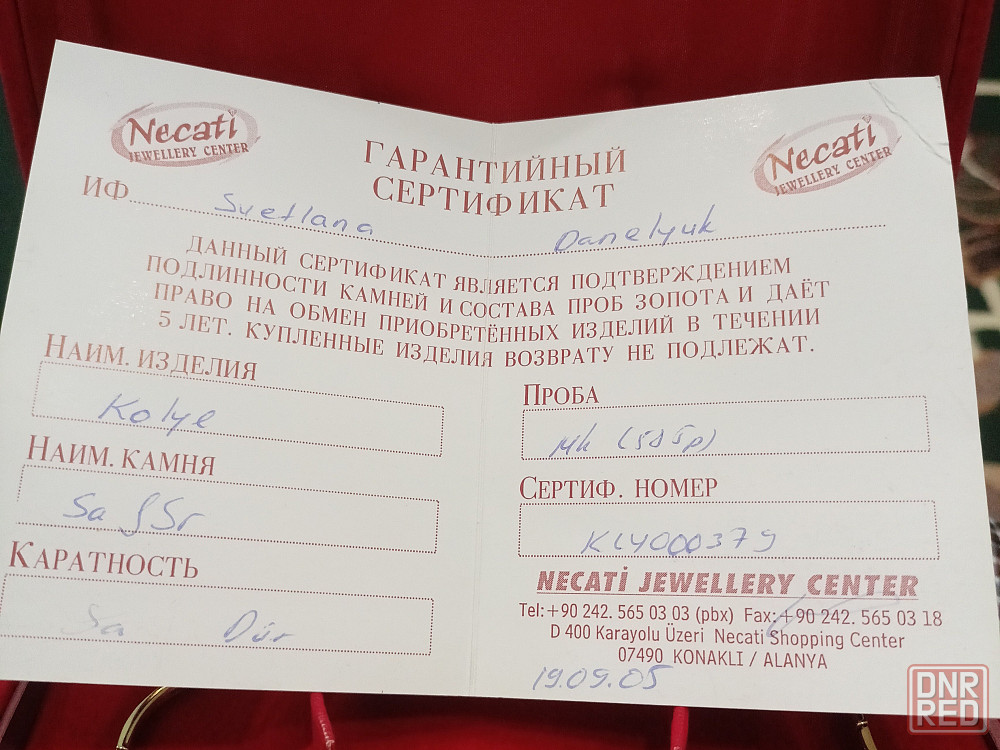 Necati
JEWELLERY CENTER
Necati
JEWELLERY CENTER
ГАРАНТИЙНЫЙ
СЕРТИФИКАТ
ИФ Svetlana Danelyuk
ДАННЫЙ СЕРТИФИКАТ ЯВЛЯЕТСЯ ПОДТВЕРЖДЕНИЕМ
ПОДЛИННОСТИ КАМНЕЙ И СОСТАВА ПРОБ ЗОПОТА И ДАЁТ
ПРАВО НА ОБМЕН ПРИОБРЕТЁННЫХ ИЗДЕЛИЙ В ТЕЧЕНИИ
5 ЛЕТ. КУПЛЕННЫЕ ИЗДЕЛИЯ ВОЗВРАТУ НЕ ПОДЛЕЖАТ.
НАИМ. ИЗДЕЛИЯ
Kolye
НАИМ. КАМНЯ
КАРАТНОСТЬ
Sa
ПРОБА
14k (585p)
СЕРТИФ. НОМЕР
KLY000379
NECATİ JEWELLERY CENTER
Tel:+90 242. 565 03 03 (pbx) Fax:+90 242. 565 03 18
D 400 Karayolu Üzeri Necati Shopping Center
07490 KONAKLI / ALANYA
19.09.05
DNR
RED